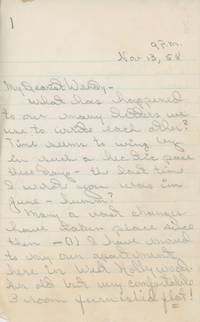 1
9 P.M.
Nov. 13, 58
My Dearest Wendy -
What has happened
to our many letters we
use to write each other?
Time seems to wing by
in such a hectic pace
these days - the last time
I wrote you was in
June - humm?
Many a vast changes
have taken place since
then - 01 I have moved
to my own apartment
here in West Hollywood.
An old but very comfortable
3 room furnished flat!